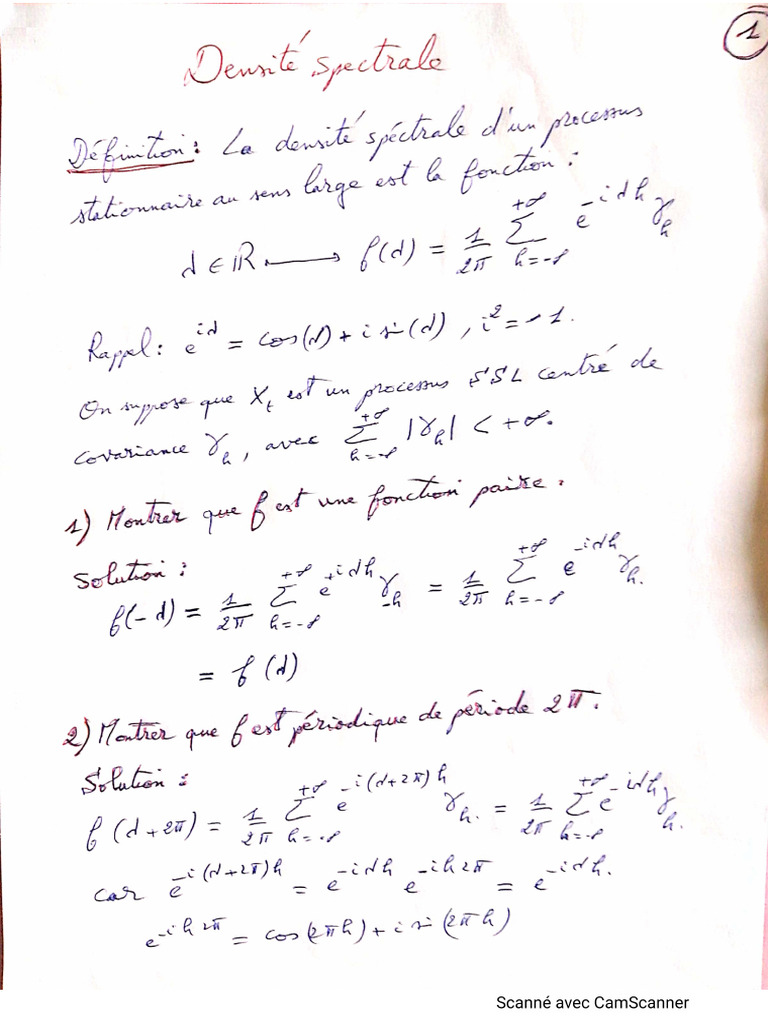 1
Densité spectrale
Définition : La densité spéctrale d'un processus
stationnaire au sens large est la fonction :
λ ∈ ℝ ⟼ f(λ) = 1/2π ∑_{h=-∞}^{+∞} e^{-iλh} γ_h
Rappel : e^{iλ} = cos(λ) + i sin(λ) , i² = -1.
On suppose que X_t est un processus SSL centré de
covariance γ_h , avec ∑_{h=-∞}^{+∞} |γ_h| < +∞.
1) Montrer que f est une fonction paire .
Solution :
f(-λ) = 1/2π ∑_{h=-∞}^{+∞} e^{+iλh} γ_{-h} = 1/2π ∑_{h=-∞}^{+∞} e^{-iλh} γ_h.
= f(λ)
2) Montrer que f est périodique de période 2π.
Solution :
f(λ+2π) = 1/2π ∑_{h=-∞}^{+∞} e^{-i(λ+2π)h} γ_h. = 1/2π ∑_{h=-∞}^{+∞} e^{-iλh} γ_h.
car e^{-i(λ+2π)h} = e^{-iλh} e^{-ih2π} = e^{-iλh}.
e^{-ih2π} = cos(2πh) + i sin(2πh)
Scanné avec CamScanner